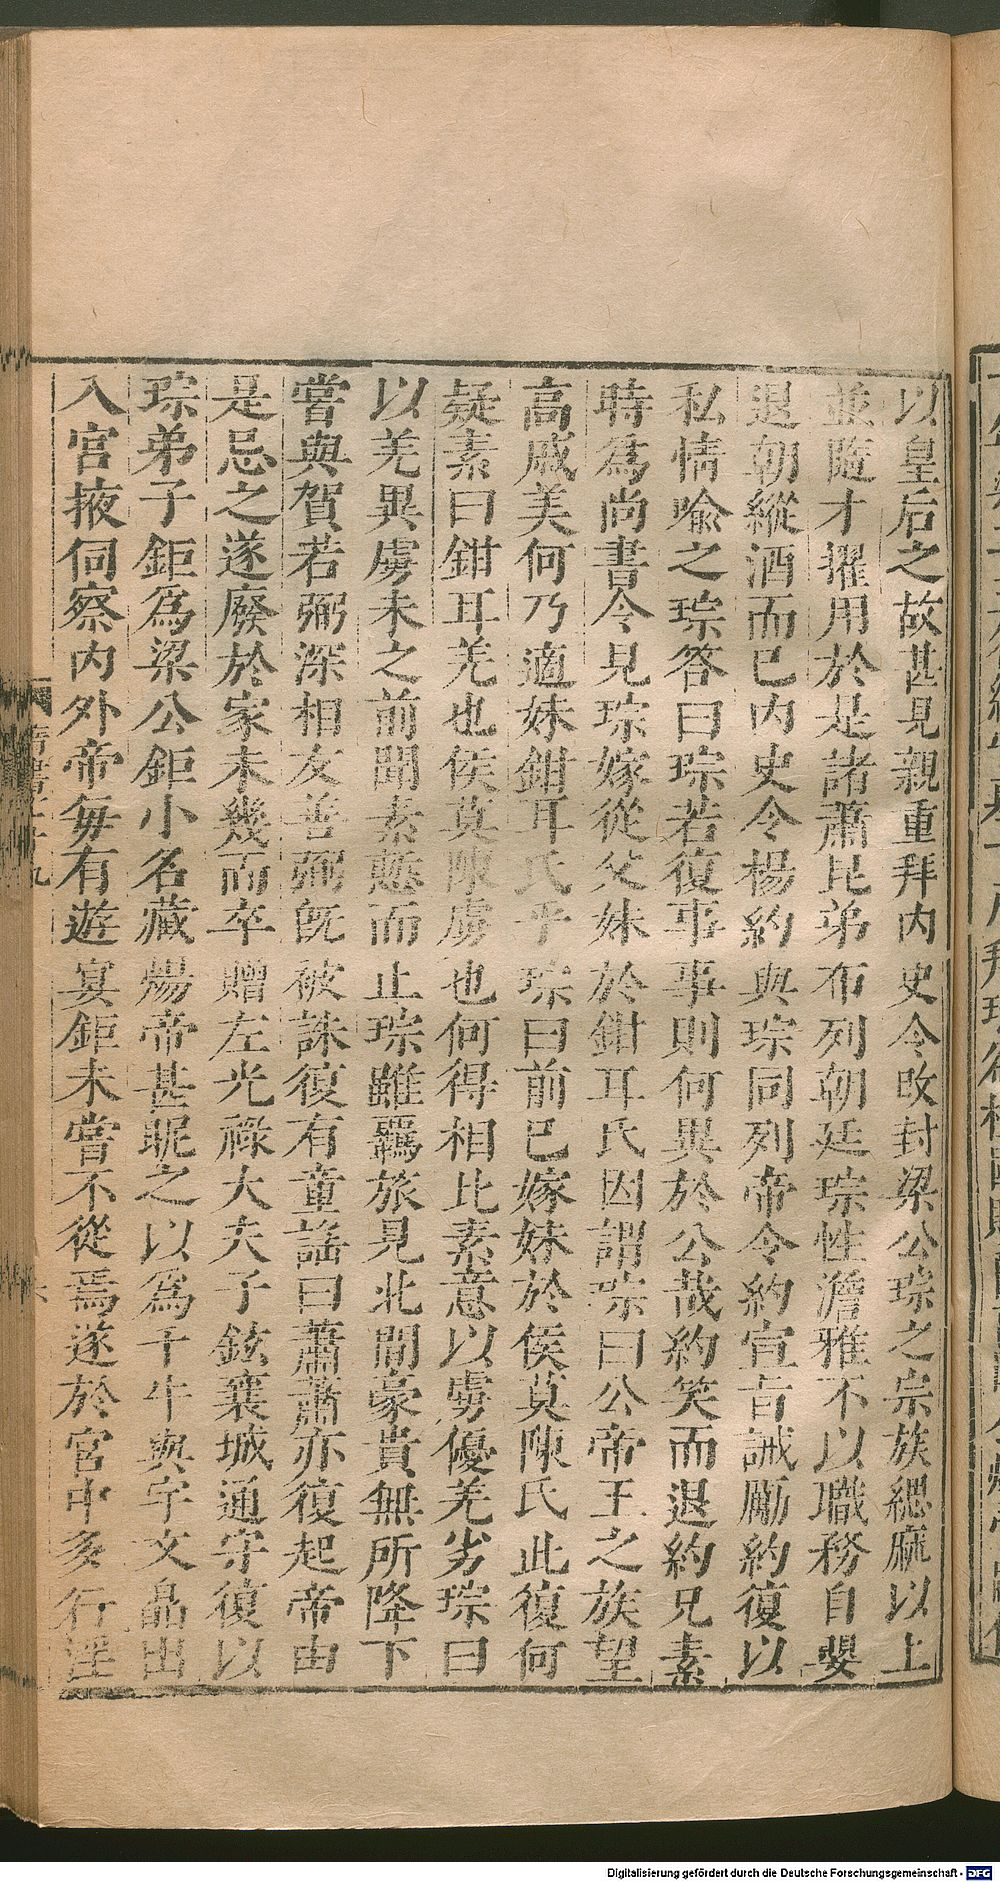 以皇后之故甚見親重拜内史令改封梁公琮之宗族緦麻以上
並隨才擢用於是諸蕭昆弟布列朝廷琮性澹雅不以職務自嬰
退朝縱酒而巳内史令楊約與琮同列帝令約宣旨誡勵約復以
私情喻之琮答曰琮若復事事則何異於公哉約笑而退約兄素
時為尚書令見琮嫁從父妹於鉗耳氏因謂琮曰公帝王之族望
高戚美何乃適妹鉗耳氏乎琮曰前巳嫁妹於侯莫陳氏此復何
疑素曰鉗耳羌也侯莫陳虜也何得相比素意以虜優羌劣琮曰
以羌異虜未之前聞素慙而止琮雖羈旅見北間豪貴無所降下
嘗與賀若弼深相友善弼旣被誅復有童謠曰蕭蕭亦復起帝由
是忌之遂廢於家未幾而卒贈左光祿大夫子鉉襄城通守復以
琮弟子鉅為梁公鉅小名藏煬帝甚昵之以為千牛與宇文皛出
入宮掖伺察内外帝毎有遊宴鉅未嘗不從焉遂於宮中多行淫
Digitalisierung gefördert durch die Deutsche Forschungsgemeinschaft - DFG